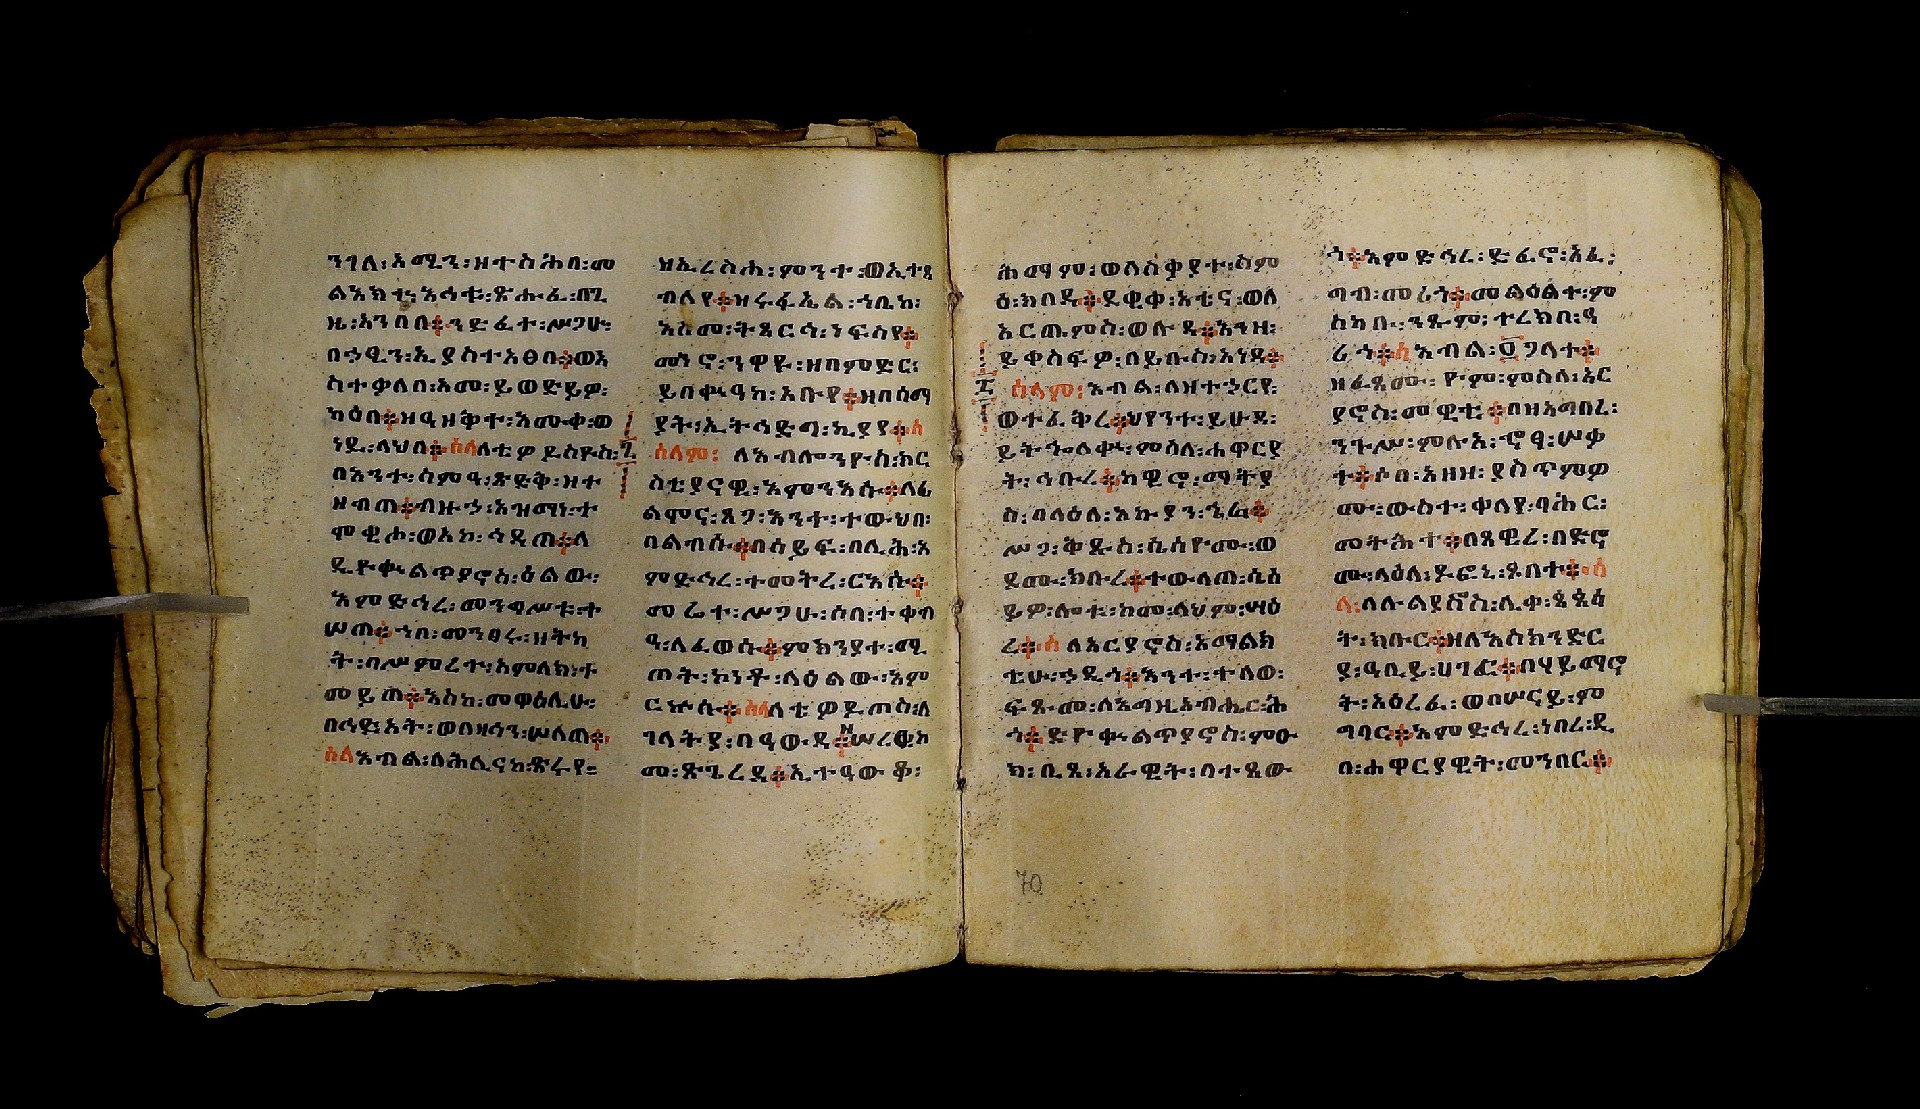 ንገለ፡አሚን፡ዘተስሕበ፡መ
ልአክተ፡አሳቱ፡ጽሑፈ፡በጊ
ዜ፡አንበበ፨ንድፈተ፡ሥጋሁ፡
በኃፂን፡ኢያስተአፅበ፨ወእ
ስተ ቃለበ፡አመ፡ይወድይዎ፡
ከዕበ፨ዘዓዘቅተ፡አሙቀ፡ወ
ነደ፡ለህበ፨ሰላለቲዎደስዮስ፡
በአንተ፡ስምዓ፡ጽድቅ፡ዘተ
ዘብጠ፨ብዙኃ፡አዝማነ፡ተ
ሞቂሖ፡ወአከ፡ኅዳጠ፨ለ
ዲዮቅልጥያኖስ፡ዕልው፡
እምድኅረ፡መንግሥቱ፡ተ
ሠጠ፨ኀበ፡መንበሩ፡ዘትካ
ት፡በሥምረተ፡አምላክ፡ተ
መይጠ፨እስከ፡መዋዕሊሁ፡
በኅዱአት፡ወበዛኅን፡ሠለጠ፨
ሰላእብል፡ለሕሊናከ፡ጽሩየ፡
ዘኢረስሐ፡ምንተ፡ወኢተጸ
ብለየ፨ዝሩፋኤል፡ኀቤከ፡
አስመ፡ትጸርሳ፡ነፍስየ፨
መኑኖ፡ንዋየ፡ዘበምድር፡
ይበቍዓከ፡አቡየ፨ዘበሰማ
ያት፡ኢትኅድግ፡ኪያየ፨ሰ
፯ ሰላም፡ ለአብሎንዮስ፡ክር
ስቲያናዊ፡እምንእሱ፨ለፊ
ልሞና፡ጸጋ፡አንተ፡ተውህበ፡
ባልብሱ፨በሰይፍ፡በሊሕ፡እ
ምድኅረ፡ተመትረ፡ርእሱ፨
መሬተ፡ሥጋሁ፡ሶበ፡ተቀብ
ዓ፡ለፈወሱ፨ምክንያተ፡ሚ
ጠት፡ኮነት፡ለዕልው፡እም
ርኵሱ፨ሰላለቲዎደጠስ፡ለ
ገላትያ፡በዓውደ፨ሠረቂ፡ከ
መ፡ጽጌረዳ፨ኢተዓውቆ፡
ሕማም፡ወለስቃያተ፡ስም
ዕ፡ክበዳ፨ደቂቀ፡እቲና፡ወለ
እርጤምስ፡ወሉዳ፨እንዘ፡
ይቀስፍዎ፡በይቡስ፡አነዳ፨
፰ ሰላም፡እብል፡ለዘተኃርየ፡
ወተፈቅረ፨ህየንተ፡ይሁዳ፡
ይትኈለቍ፡ምስለ፡ሐዋርያ
ት፡ኅቡረ፨ከዊኖ፡ማትያ
ስ፡በላዕለ፡እኩያን፡ኄራ፨
ሥጋ፡ቅዱስ፡ሲሰዮሙ፡ወ
ደሙ፡ክቡረ፨ተውላጠ፡ሲሰ
ይዎ፡ሎቱ፡ከመ፡ላህም፡ሣዕ
ረ፨ሰለእርያኖስ፡አማልክ
ቲሁ፡ኃዲጎ፨አንተ፡ተለወ፡
ፍጹመ፡ለእግዚአብሔር፡ሕ
ጎ፨ድዮቅልጥያኖስ፡ምዑ
ክ፡ቢጸ፡አራዊት፡በተጸው
ጎ፨እምድኅረ፡ድፈኖ፡አፈ፡
ግብ፡መሪጎ፨መልዕልተ፡ም
ስካቡ፡ንጹም፡ተረክበ፡ዓ
ሪጎ፨ሰእብል፡፬ጋለተ፨
ዘፈጸሙ፡ዮም፡ምስለ፡አር
ያኖስ፡መዊቲ፨በዘአግበረ፡
ንጉሥ፡ምሉአ፡ኆፃ፡ሠቃ
ተ፨ሶበ፡አዘዘ፡ያስጥምዎ
ሙ፡ውስተ፡ቀላየ፡ባሕር፡
መትሕተ፨በጸዊረ፡በድኖ
ሙ፡ላዕለ፡ዶፍኒ፡ጸበተ፨ሰ
ለ፡ለሉልያኖስ፡ሊቀ፡ጳጳሳ
ት፡ክቡር፨ዘለእስክንድር
ያ፡ዓቢይ፡ሀገር፨በሃይማኖ
ት፡አዕረፈ፡ወበሠናይ፡ም
ግባር፨እምድኅረ፡ነበረ፡ዲ
በ፡ሐዋርያዊት፡መንበር፨
70